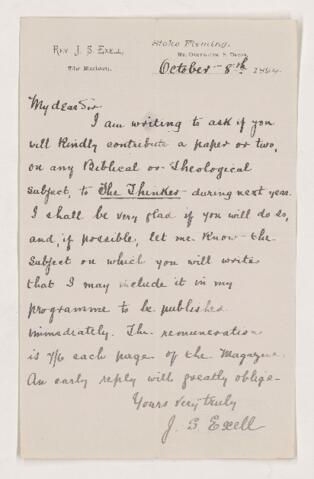 Rev. J. S. Exell,
The Rectory,
Stoke Fleming,
Nr. Dartmouth, S. Devon,
October 8th 1894
My dear Sir
I am writing to ask if you
will kindly contribute a paper or two,
on any Biblical or Theological
subject, to The Thinker during next year.
I shall be very glad if you will do so,
and, if possible, let me know the
subject on which you will write
that I may include it in my
programme to be published
immediately. The remuneration
is 7/6 each page of the Magazine.
An early reply will greatly oblige
Yours very truly
J. S. Exell